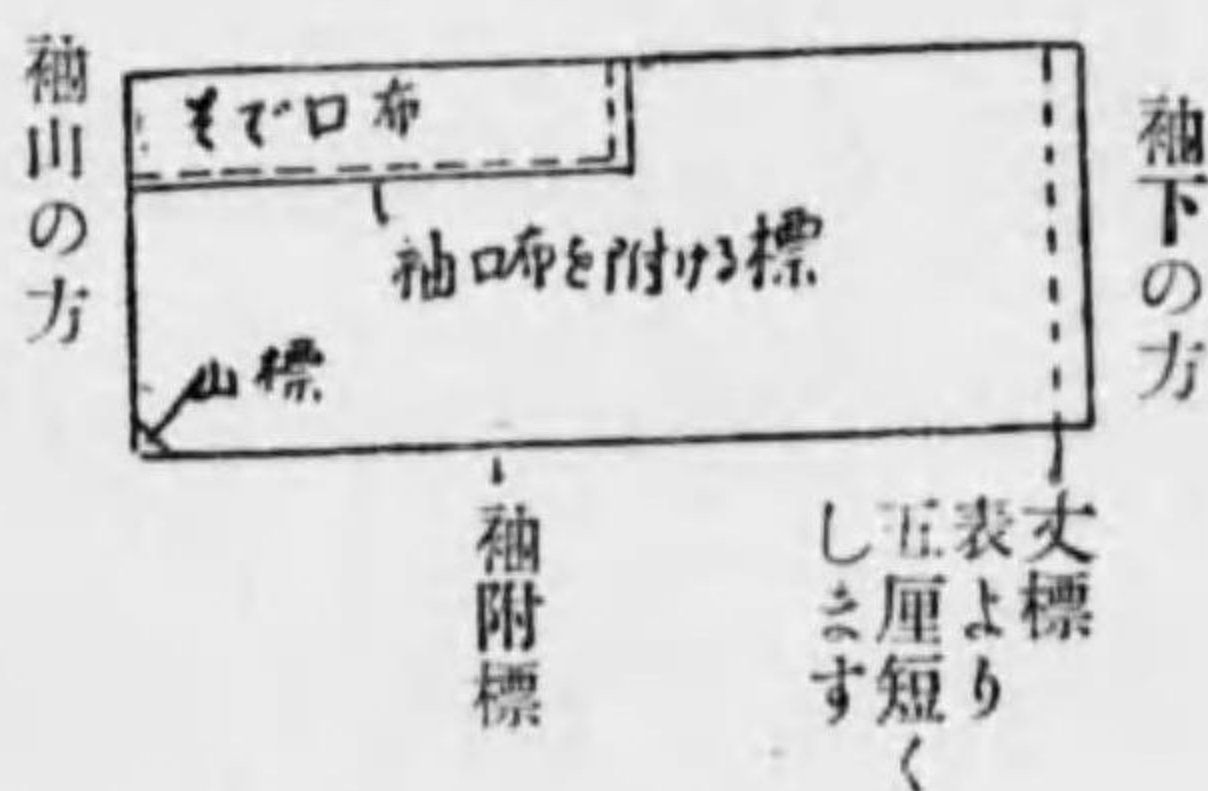 袖山の方
そで口布
袖口布を附ける標
山標
袖下の方
袖附標
丈標
表より
五厘短く
します